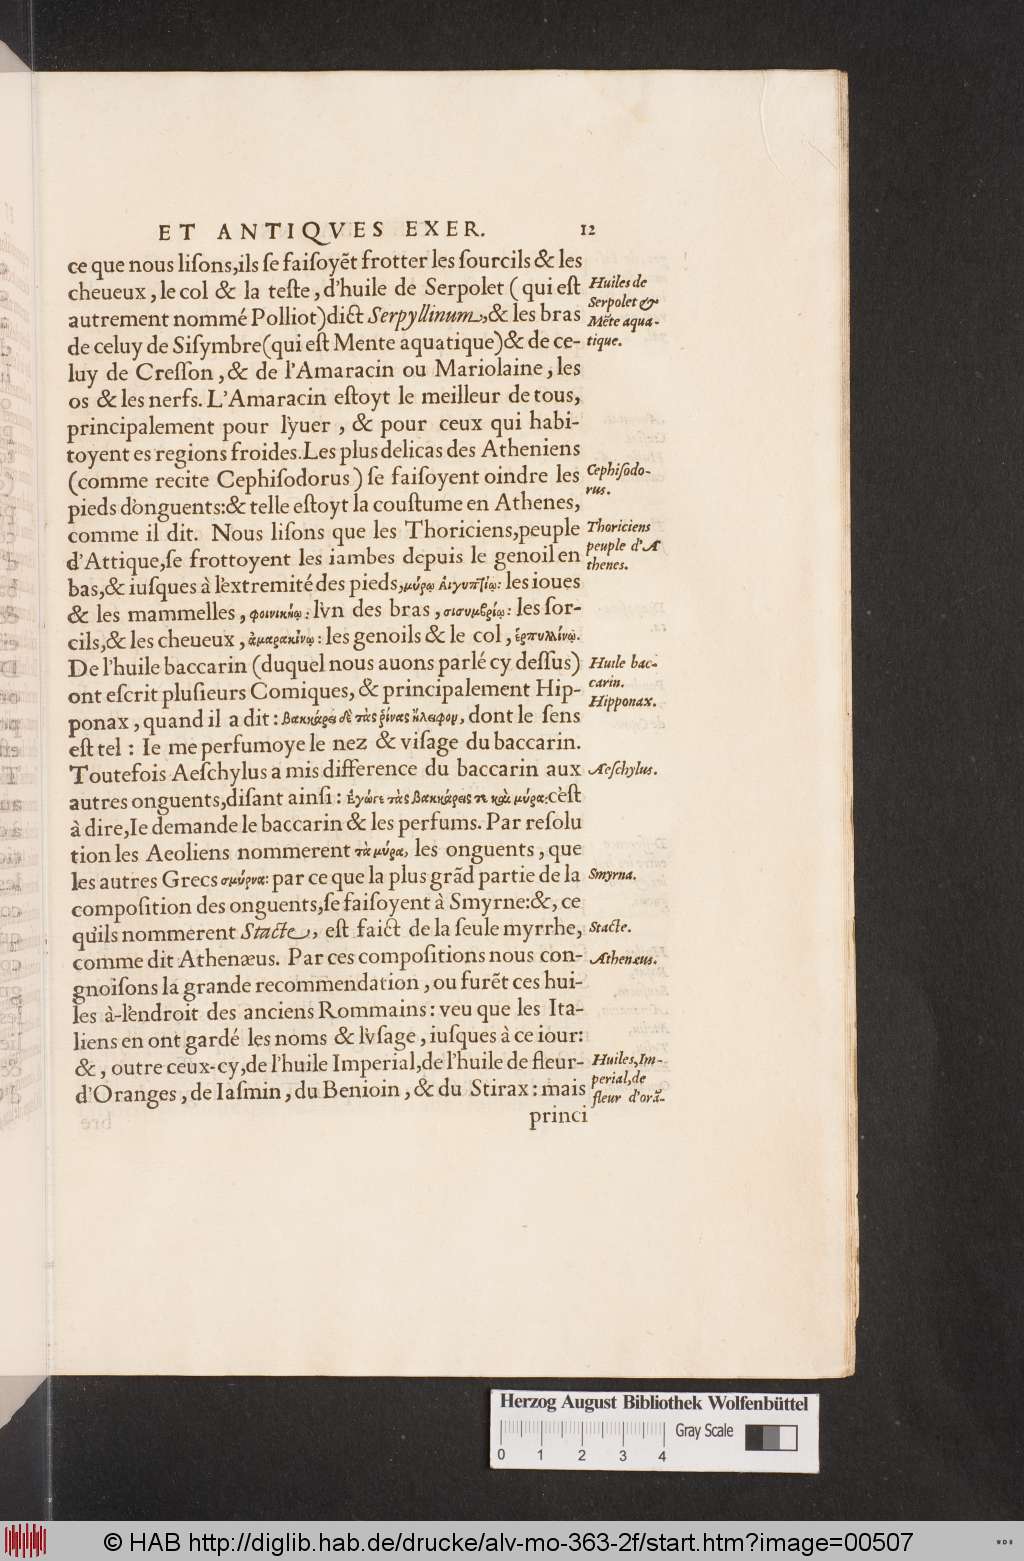 ET ANTIQVES EXER. 12
ce que nous liſons,ils ſe faiſoyẽt frotter les ſourcils & les
cheueux, le col & la teſte, d'huile de Serpolet ( qui eſt
autrement nommé Polliot)dict Serpyllinum,& les bras
de celuy de Siſymbre(qui eſt Mente aquatique)& de ce-
luy de Creſſon, & de l'Amaracin ou Mariolaine, les
os & les nerfs. L'Amaracin eſtoyt le meilleur de tous,
principalement pour l'yuer , & pour ceux qui habi-
toyent es regions froides.Les plus delicas des Atheniens
(comme recite Cephiſodorus) ſe faiſoyent oindre les
pieds d'onguents:& telle eſtoyt la couſtume en Athenes,
comme il dit. Nous liſons que les Thoriciens,peuple
d'Attique,ſe frottoyent les iambes depuis le genoil en
bas,& iuſques à l'extremité des pieds,μύρῳ Αἰγυπτίῳ: les ioues
& les mammelles, φοινικίνῳ: l'vn des bras, σισυμβρίῳ: les ſor-
cils,& les cheueux, ἀμαρακίνῳ: les genoils & le col, ἑρπυλλίνῳ.
De l'huile baccarin (duquel nous auons parlé cy deſſus)
ont eſcrit pluſieurs Comiques, & principalement Hip-
ponax, quand il a dit: βακκάρει δὲ τὰς ῥίνας ἤλειφον, dont le ſens
eſt tel : Ie me perfumoye le nez & viſage du baccarin.
Toutefois Aeſchylus a mis difference du baccarin aux
autres onguents,diſant ainſi: Ἐγώγε τὰς βακκάρεις τε καὶ μύρα:c'eſt
à dire,Ie demande le baccarin & les perfums. Par reſolu
tion les Aeoliens nommerent τὰ μύρα, les onguents, que
les autres Grecs σμύρνα: par ce que la plus grãd partie de la
compoſition des onguents,ſe faiſoyent à Smyrne:&, ce
qu'ils nommerent Stacte, eſt faict de la ſeule myrrhe,
comme dit Athenæus. Par ces compoſitions nous con-
gnoiſons la grande recommendation, ou furẽt ces hui-
les à-l'endroit des anciens Rommains: veu que les Ita-
liens en ont gardé les noms & l'vſage, iuſques à ce iour:
&, outre ceux-cy,de l'huile Imperial,de l'huile de fleur-
d'Oranges, de Iaſmin, du Benioin, & du Stirax: mais
princi
Huiles de
Serpolet &
Mẽte aqua-
tique.
Cephiſodo-
rus.
Thoriciens
peuple d'A
thenes.
Huile bac-
carin.
Hipponax.
Aeſchylus.
Smyrna.
Stacte.
Athenæus.
Huiles,Im-
perial,de
fleur d'orã-
Herzog August Bibliothek Wolfenbüttel
Gray Scale
0 1 2 3 4
© HAB http://diglib.hab.de/drucke/alv-mo-363-2f/start.htm?image=00507